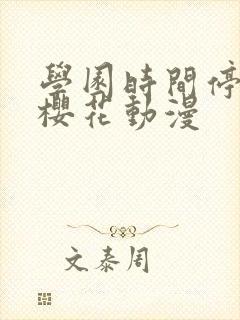 學園時間停
櫻花動漫
文泰周